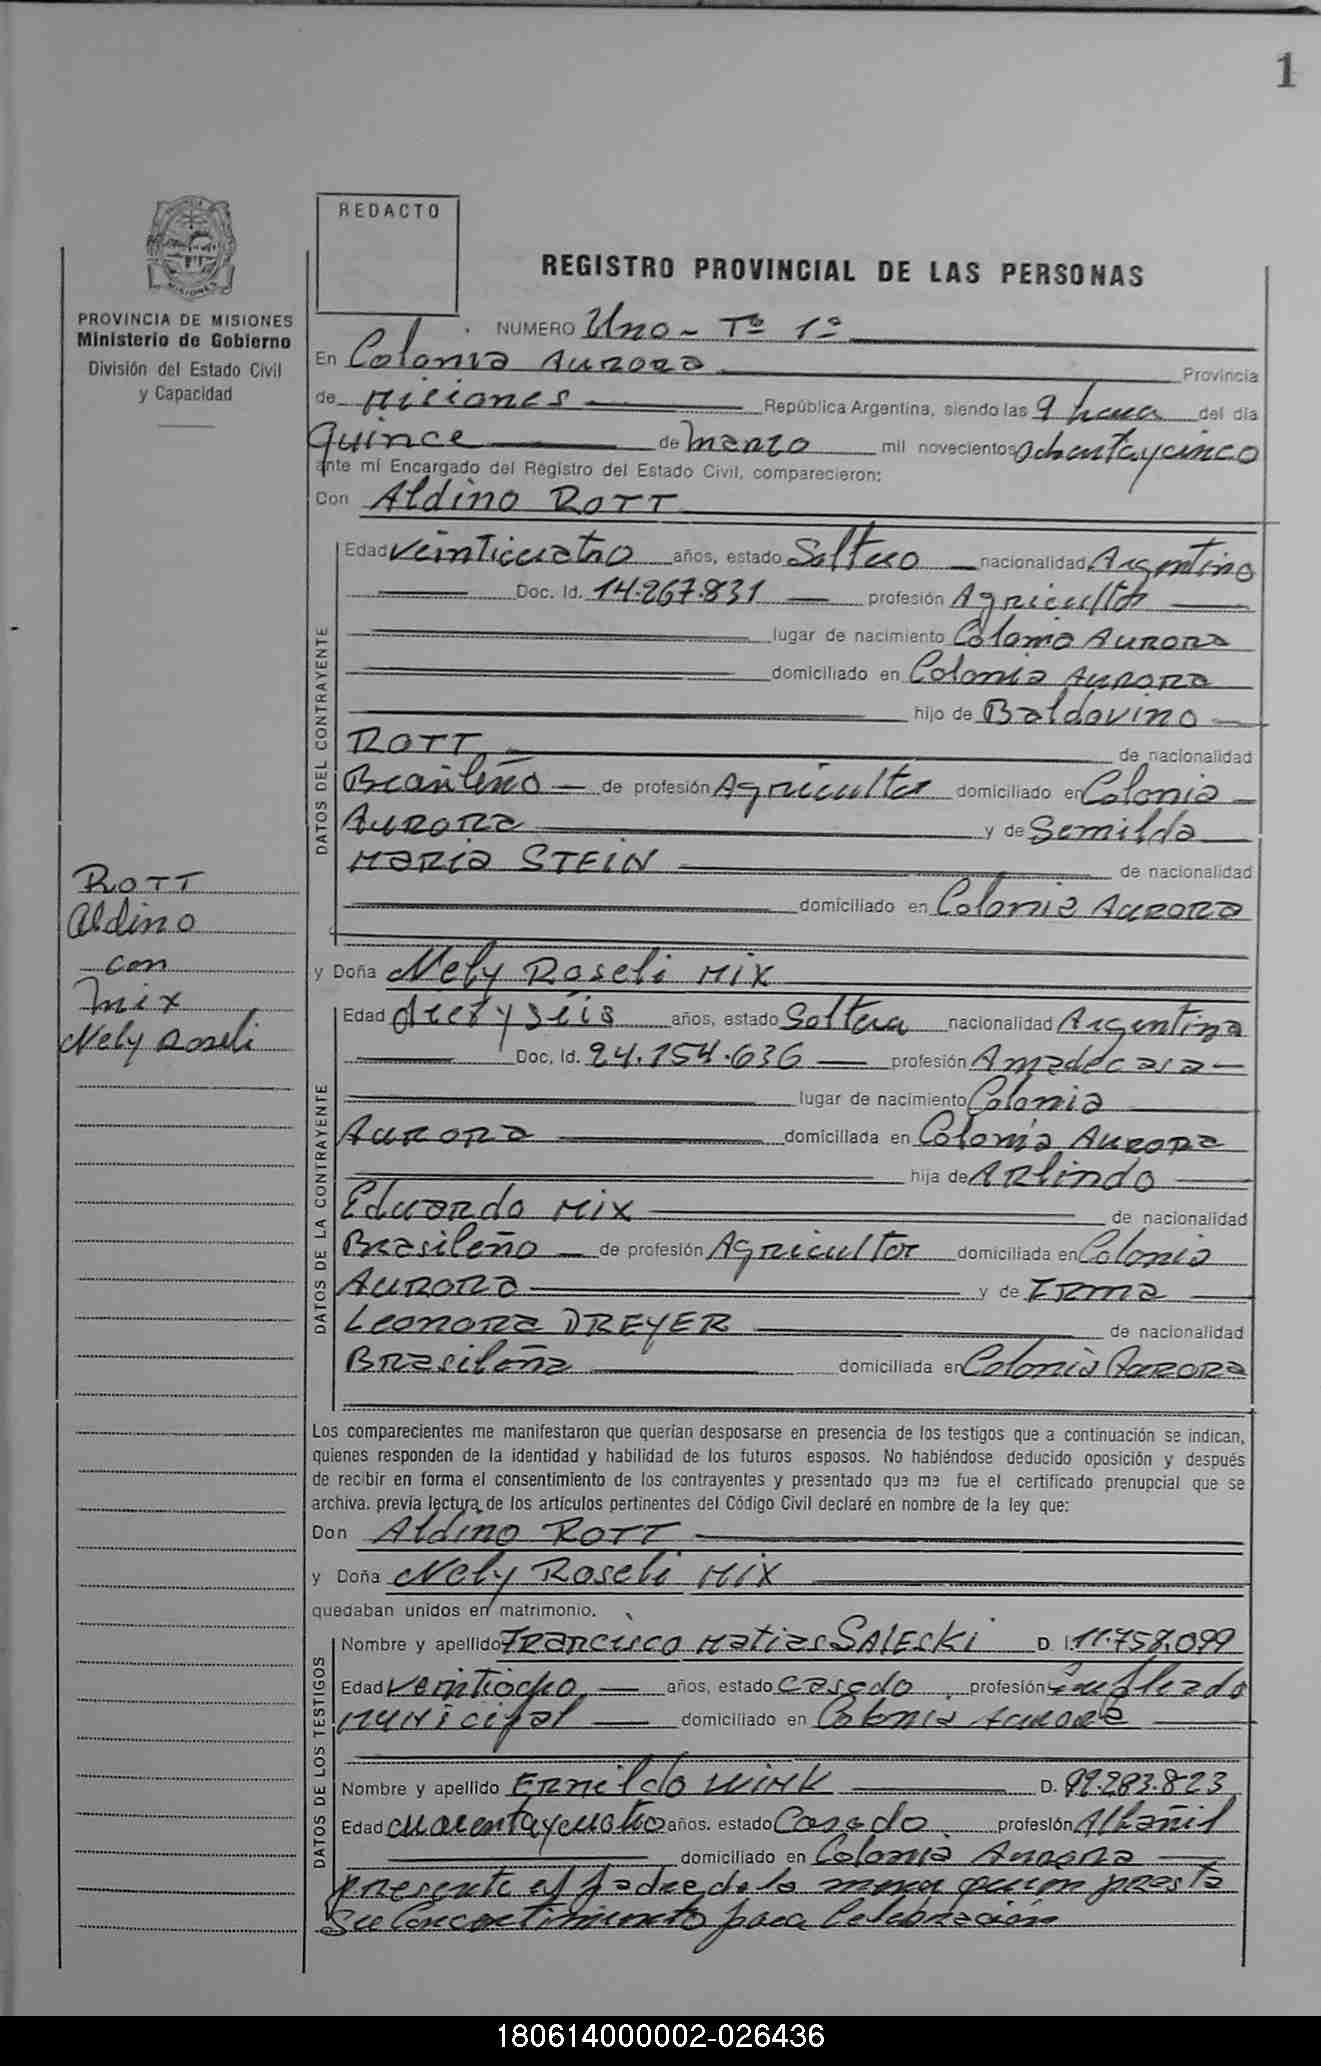 1
REDACTO
REGISTRO PROVINCIAL DE LAS PERSONAS
PROVINCIA DE MISIONES
Ministerio de Gobierno
División del Estado Civil
y Capacidad
NUMERO Uno - Tº 1º
En Colonia Aurora Provincia
de Misiones República Argentina, siendo las 9 horas del día
quince de marzo mil novecientos ochenta y cinco
ante mí Encargado del Registro del Estado Civil, comparecieron:
Con Aldino ROTT
DATOS DEL CONTRAYENTE
Edad veinticuatro años, estado Soltero nacionalidad Argentino
Doc. Id. 14.267.831 profesión Agricultor
lugar de nacimiento Colonia Aurora
domiciliado en Colonia Aurora
hijo de Baldovino
ROTT de nacionalidad
Brasileño de profesión Agricultor domiciliado en Colonia
Aurora y de Semilda
Maria STEIN de nacionalidad
domiciliado en Colonia Aurora
ROTT
Aldino
con
Mix
Nely Roseli
y Doña Nely Roseli Mix
DATOS DE LA CONTRAYENTE
Edad diez y séis años, estado Soltera nacionalidad Argentina
Doc. Id. 24.154.636 profesión Ama de casa
lugar de nacimiento Colonia
Aurora domiciliada en Colonia Aurora
hija de Arlindo
Eduardo Mix de nacionalidad
Brasileño de profesión Agricultor domiciliada en Colonia
Aurora y de Irma
Leonora DREYER de nacionalidad
Brasileña domiciliada en Colonia Aurora
Los comparecientes me manifestaron que querían desposarse en presencia de los testigos que a continuación se indican,
quienes responden de la identidad y habilidad de los futuros esposos. No habiéndose deducido oposición y después
de recibir en forma el consentimiento de los contrayentes y presentado que me fue el certificado prenupcial que se
archiva. previa lectura de los artículos pertinentes del Código Civil declaré en nombre de la ley que:
Don Aldino ROTT
y Doña Nely Roseli Mix
quedaban unidos en matrimonio.
DATOS DE LOS TESTIGOS
Nombre y apellido Francisco Matias SALESKI D. I. 11.758.099
Edad veintiocho años, estado casado profesión Empleado
Municipal domiciliado en Colonia Aurora
Nombre y apellido Ernildo WINK D. 92.283.823
Edad cuarenta y cuatro años. estado Casado profesión Albañil
domiciliado en Colonia Aurora
presente el padre de la menor quien presta
su concentimiento para Celebración
180614000002-026436